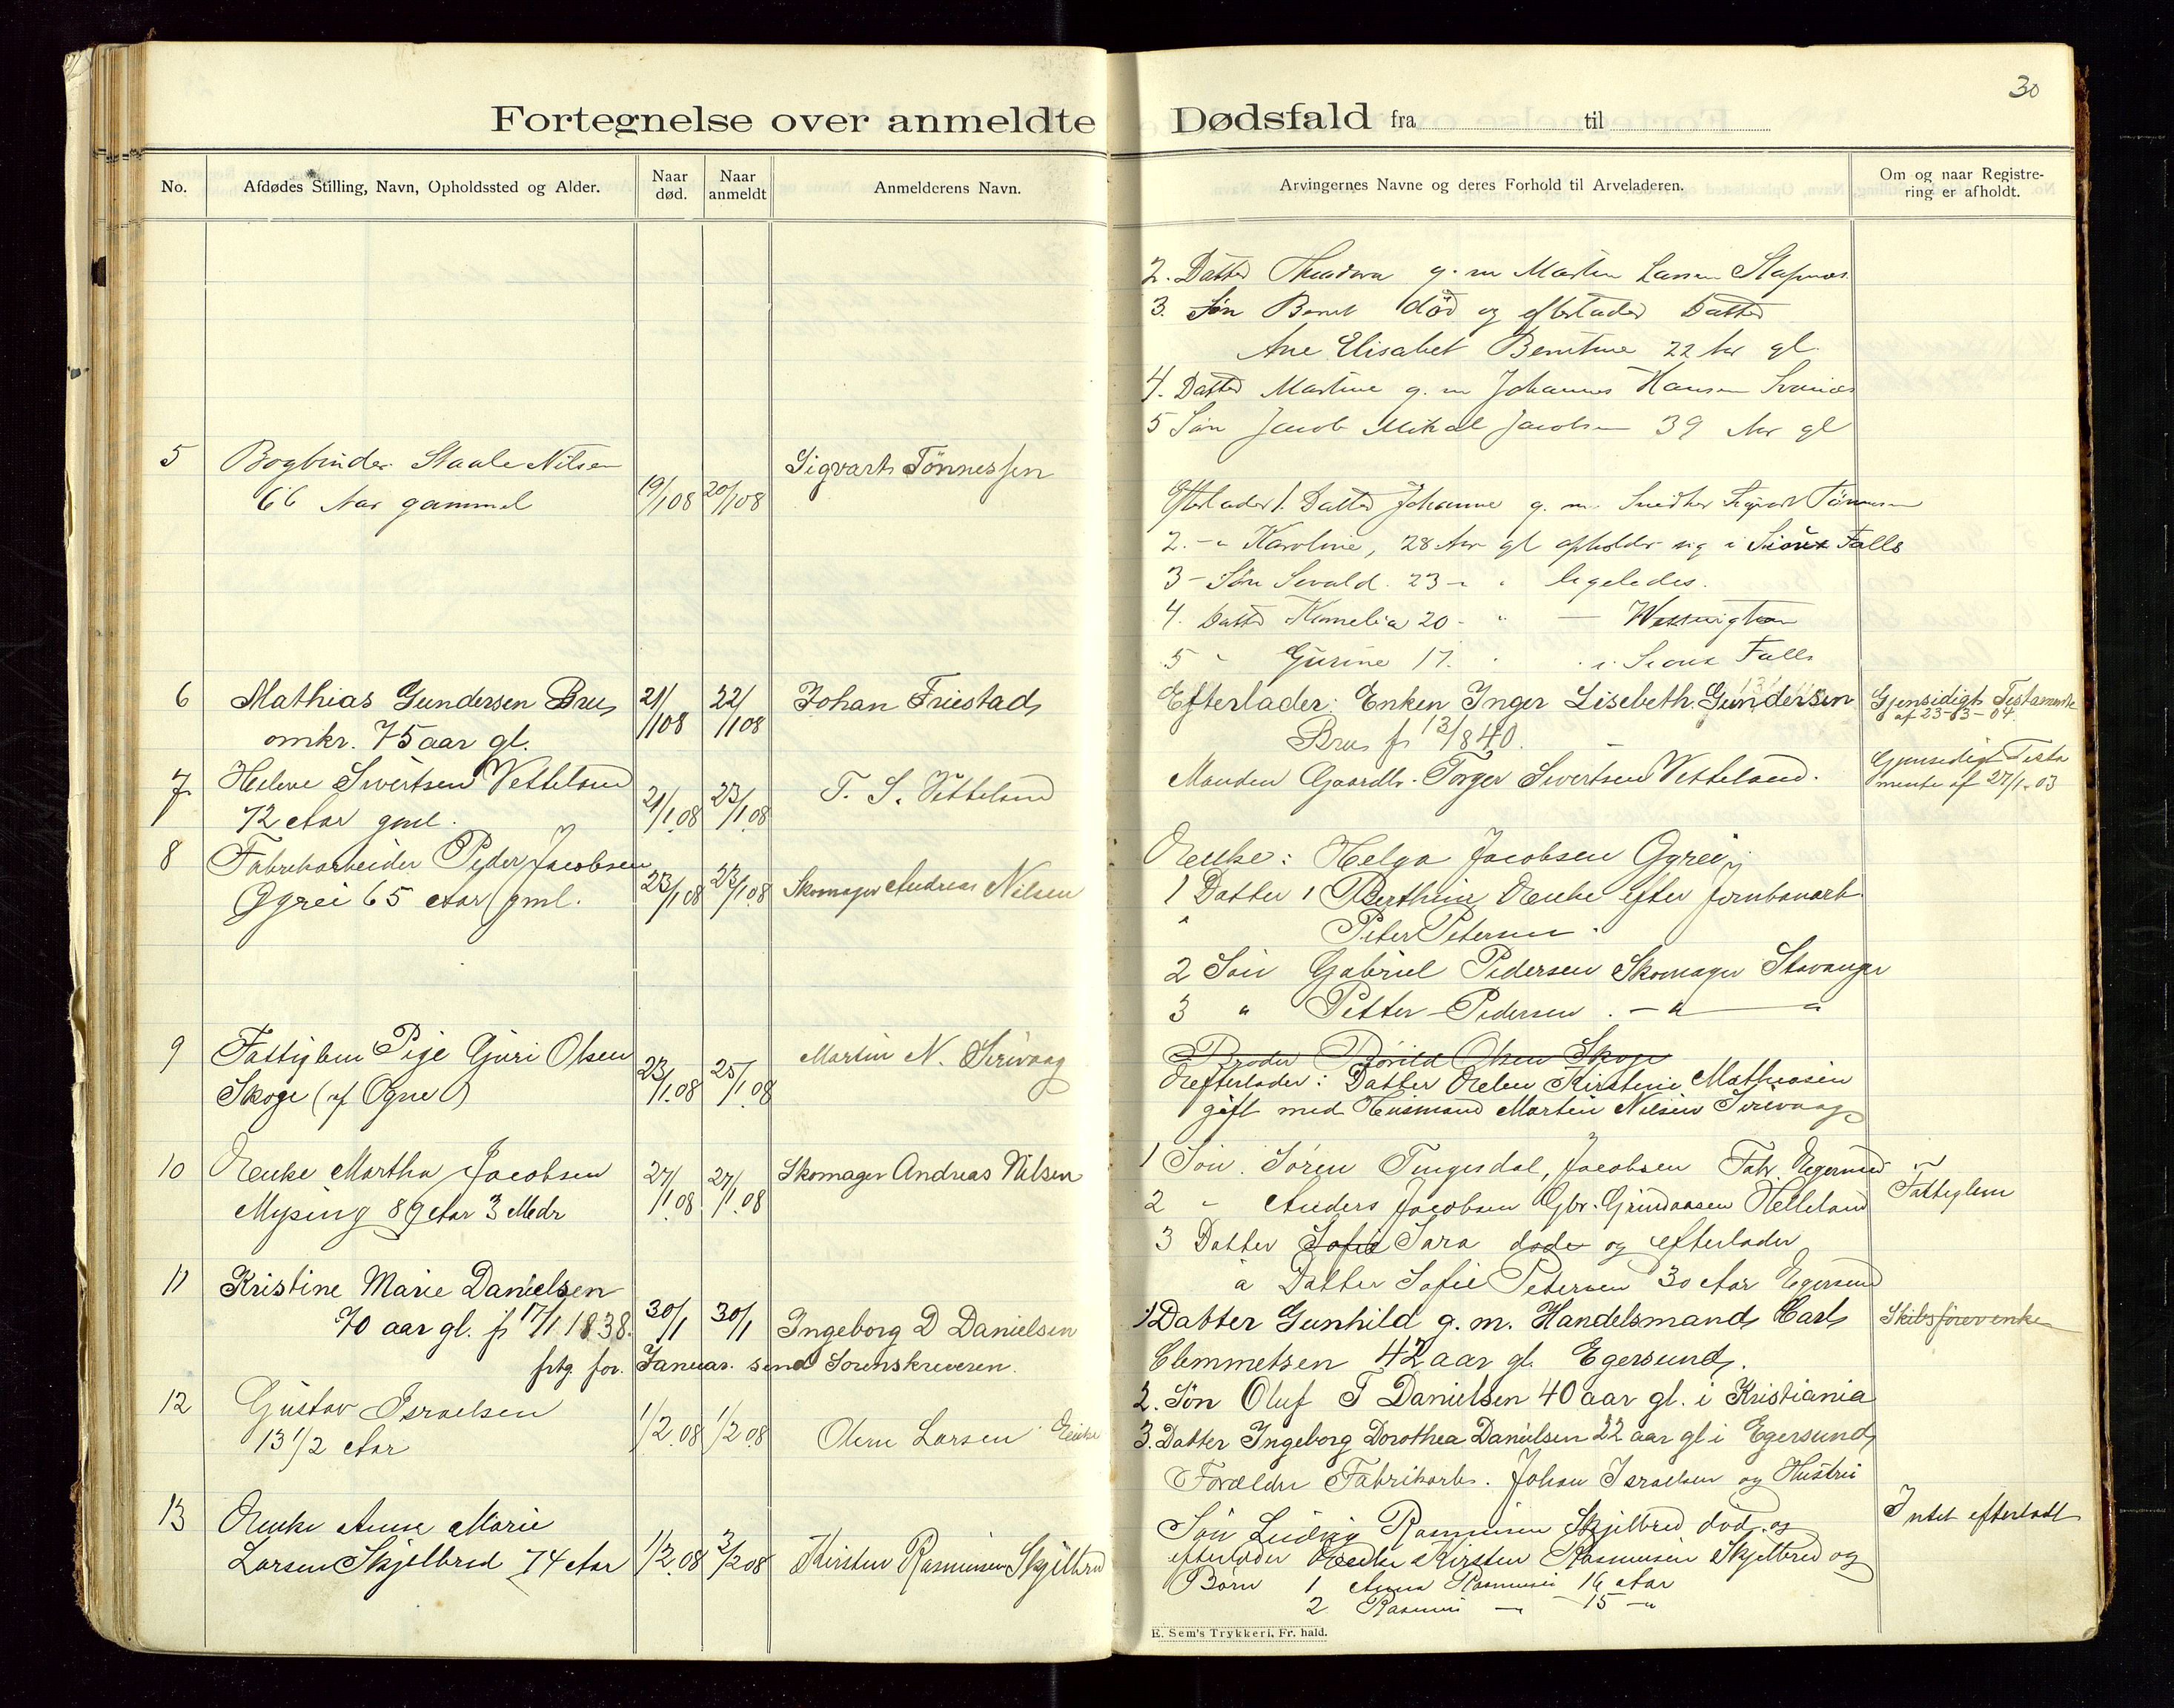 30
Fortegnelse over anmeldte Dødsfald fra til
No.
Afdødes Stilling, Navn, Opholdssted og Alder.
Naar død.
Naar anmeldt
Anmelderens Navn.
Arvingernes Navne og deres Forhold til Arveladeren.
Om og naar Registre-
ring er afholdt.
2. Datter g. m Martin Larsen
3. Søn Berent død og efterlader Datter
Ane Elisabet 22 Aar gl.
4. Datter Martine g. m Johannes Hansen
5 Søn Jacob Mikal Jacobsen 39 Aar gl
5 Bogbinder Staale Nilsen
66 Aar gammel
19/1 08 20/1 08
Sigvart Tönnessen
Efterlader 1. Datter Johanne g. m. Sigvart Tönnessen
2. -"- Karoline, 28 Aar gl opholder sig i Sioux Falls
3 - Søn Sevald. 23 - " " ligeledes.
4. Datter Kornelia 20 - " —
5 " Gurine 17. " " i Sioux Falls
6 Mathias Gundersen Brus
omkr. 75 aar gl.
21/1 08 22/1 08
Johan Friestad
Efterlader: Enken Inger Lisebeth Gundersen
Brus f 13/8 40.
Gjensidigt Testamente
af 23-03-04
7 Helene Sivertsen Vetteland
72 Aar gml.
21/1 08 23/1 08
T. S. Vetteland
Manden Gaardbr. Torger Sivertsen Vetteland.
Gjensidigt Testa
mente af 27/1-03
8 Fabrikarbeider Peder Jacobsen
Ggrei 65 Aar gml.
23/1 08 23/1 08
Skomager Andreas Nilsen
Enke: Helga Jacobsen Ggrei
1 Datter 1 Berthine Enke efter Jernbanearb.
" Peter Petersen.
2 Søn Gabriel Pedersen Skomager Stavanger
3 " Petter Pedersen. — " — "
9 Fattiglem Pige Guri Olsen
Skoge (af Ogne)
23/1 08 25/1 08
Martin N. Sirivaag
Broder Olsen Skoge
Efterlader: Datter Elen Kirstine Mathiasen
gift med Husmand Martin Nilsen Sirevaag
10 Enke Martha Jacobsen
Mysing 89 Aar 3 Mdr
27/1 08 27/1 08
Skomager Andreas Nilsen
1 Søn. Søren Tengesdal, Jacobsen Fabr. Egersund
2 " Anders Jacobsen Gbr. Grindaasen Helleland
3 Datter Sofie Sara døde og efterlader
a Datter Sofie Petersen 30 Aar Egersund
Fattiglem
11 Kristine Marie Danielsen
70 aar gl. f 17/1 1838.
30/1 30/1
Ingeborg D Danielsen
1) Datter Gunhild g. m. Handelsmand Carl
Clemmetsen 42 aar gl. Egersund.
2. Søn Oluf T Danielsen 40 aar gl. i Kristiania
3. Datter Ingeborg Dorothea Danielsen 22 aar gl i Egersund
Skibsførerenke
frtg. for. Januar. send Sorenskriveren.
12 Gustav Israelsen
13 1/2 Aar
1/2 08 1/2 08
Larsen Enke
Forældre Fabrikarb. Johan Israelsen og Hustru
13 Enke Anne Marie
Larsen Skjelbred 74 Aar
1/2 08 3/2 08
Kirsten Rasmussen Skjelbred
Søn Ludvig Rasmussen Skjelbred død og
efterlader Enke Kirsten Rasmussen Skjelbred og
Børn 1 Anna Rasmussen 16 Aar
2 Rasmus — 15 — "
Intet efterladt
E. Sem's Trykkeri, Fr. hald.